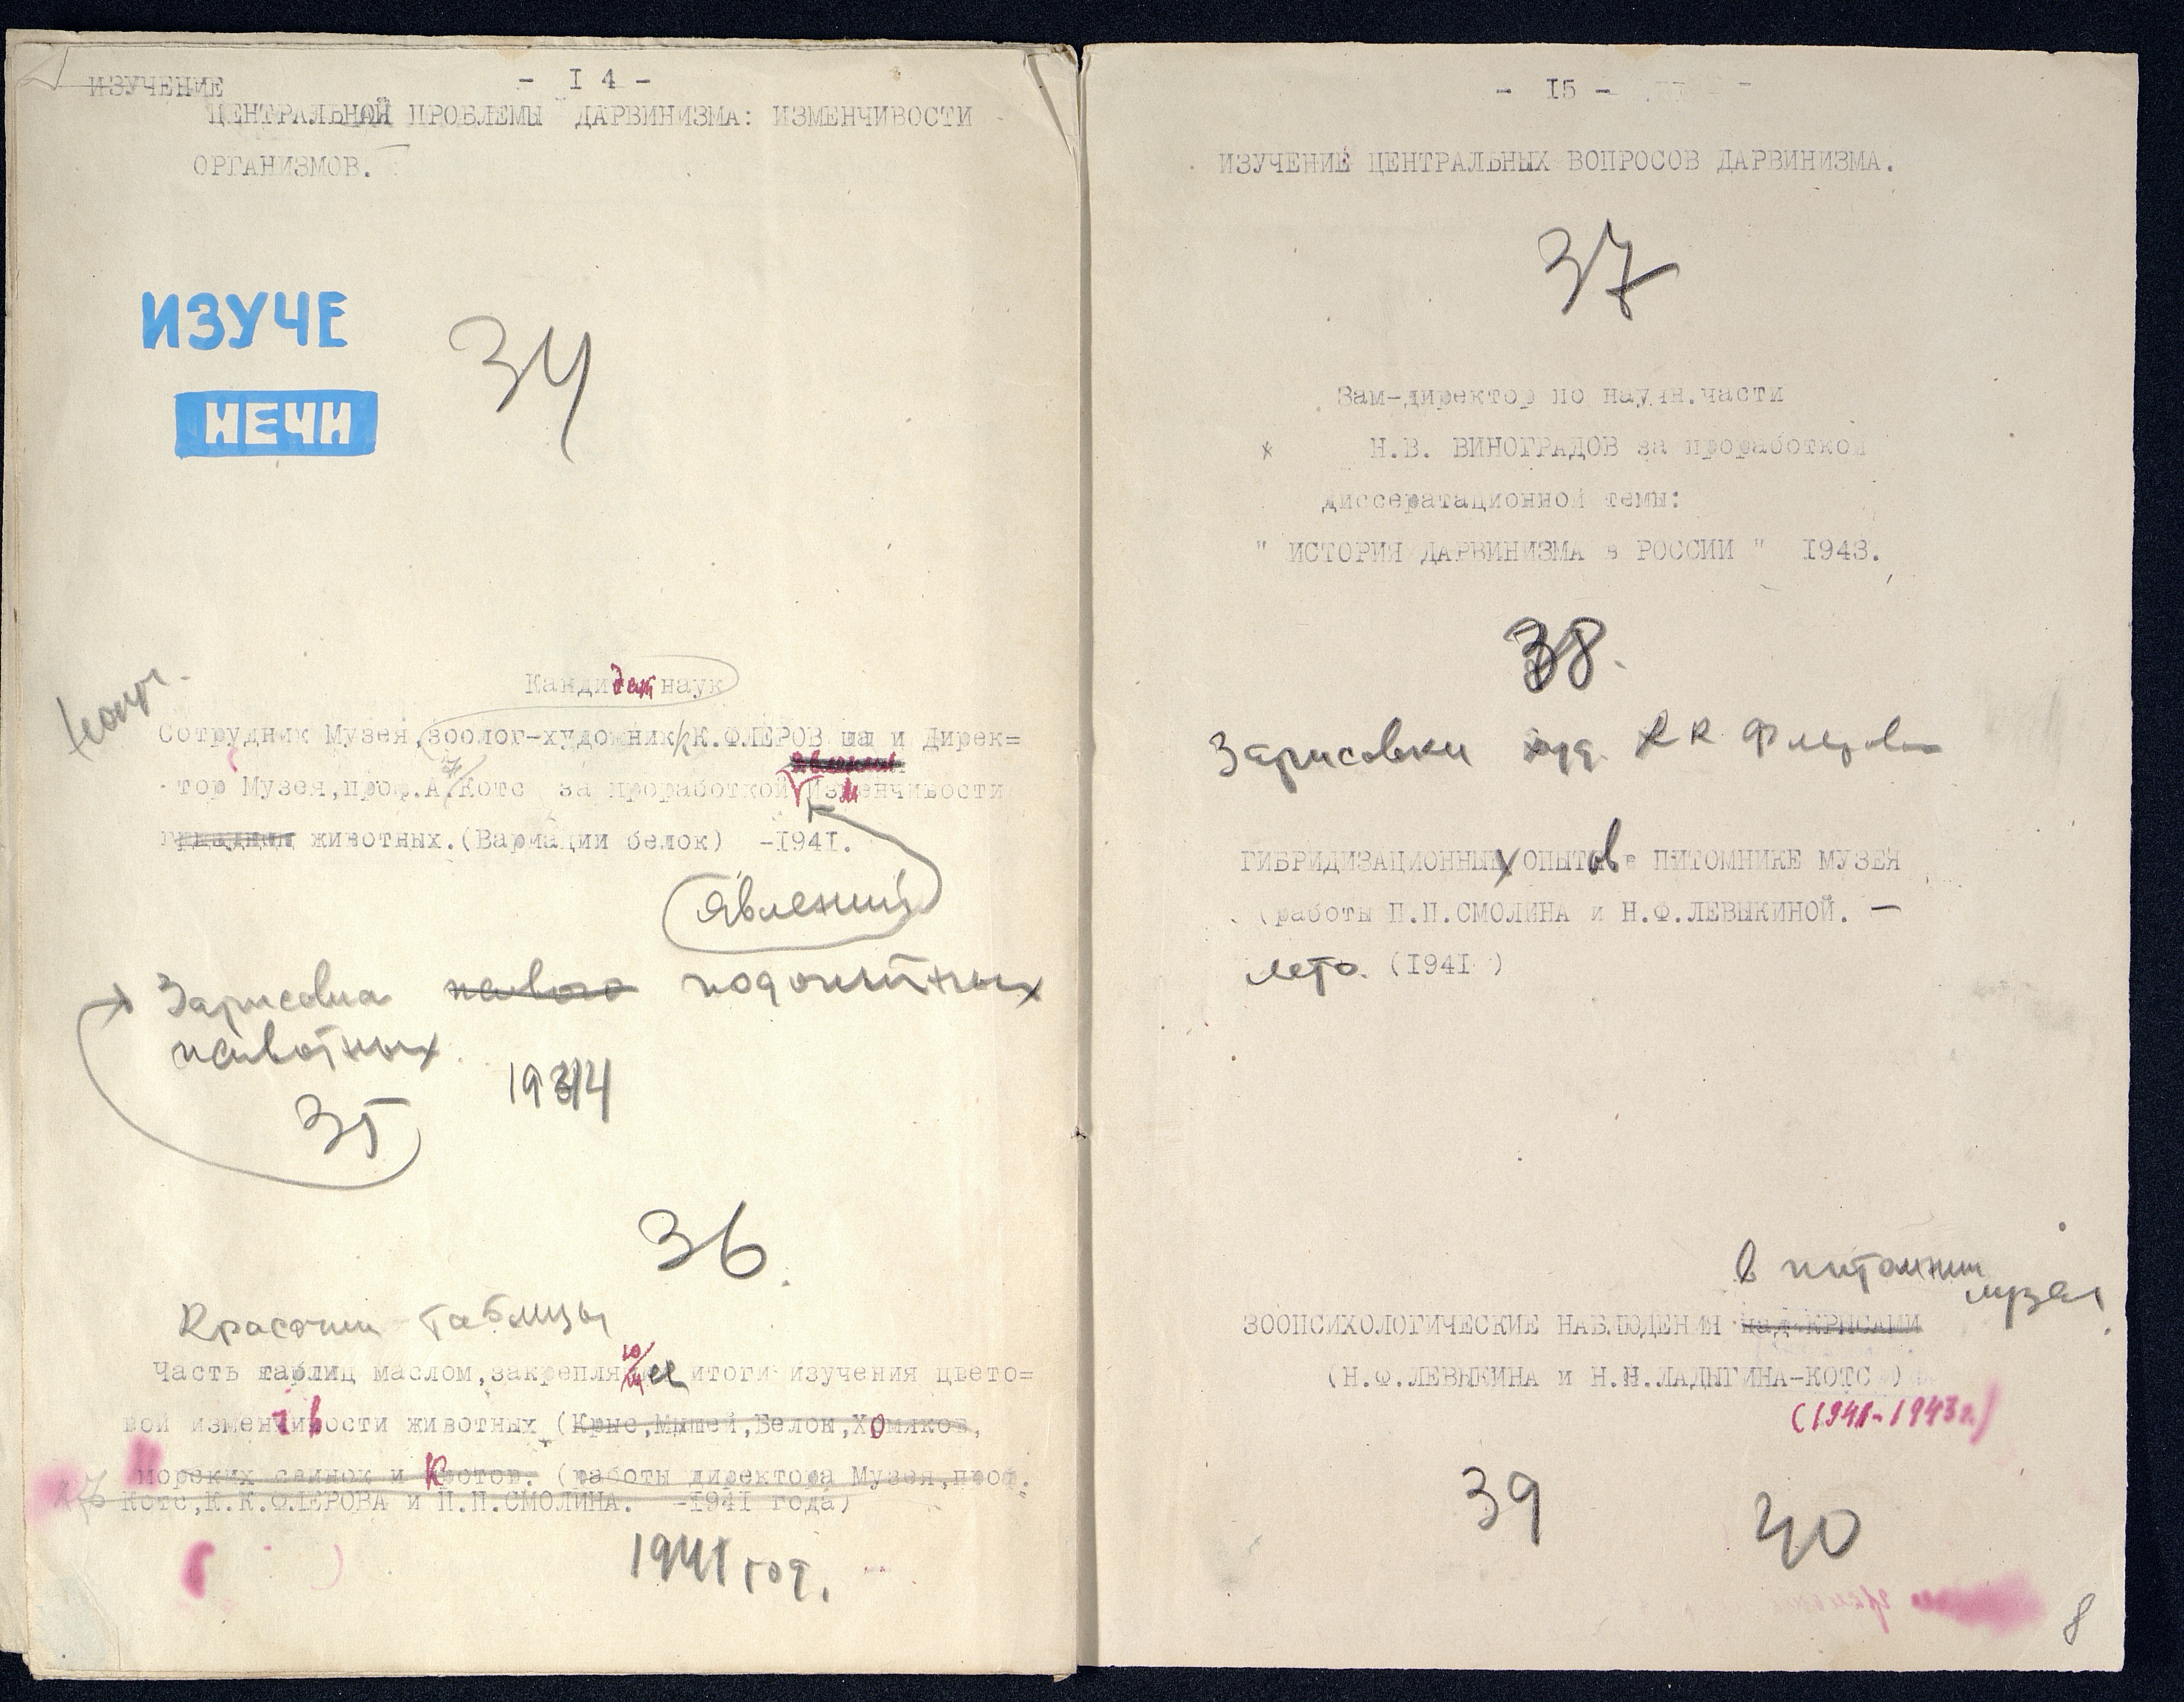 - I 4 -
ИЗУЧЕНИЕ
ЦЕНТРАЛЬНОЙ ПРОБЛЕМЫ ДАРВИНИЗМА: ИЗМЕНЧИВОСТИ
ОРГАНИЗМОВ.
ИЗУЧЕ
НЕЧИ
34
Кандидат наук
Сотрудник Музея, зоолог-художник К.К.ФЛЕРОВ и Дирек=
тор Музея, проф. А.Ф. Котс за проработкой Изменчивости
животных. (Вариации белок) -1941.
явлений
Зарисовка подопытных
животных.
1934
35
36.
Красочные таблицы
Часть таблиц маслом, закрепляющие итоги изучения цвето=
вой изменчивости животных (Крыс, Мышей, Белок, Хомяков,
Морских свинок и Кротов. (работы директора Музея, проф.
Котс, К.К.ФЛЕРОВА и П.П.СМОЛИНА. -1941 года)
1941 год.
- 15 -
ИЗУЧЕНИЕ ЦЕНТРАЛЬНЫХ ВОПРОСОВ ДАРВИНИЗМА.
37
Зам-директор по научн. части
х Н.В. ВИНОГРАДОВ за проработкой
диссератационной темы:
" ИСТОРИЯ ДАРВИНИЗМА в РОССИИ " 1943.
38.
Зарисовки худ. К К Флерова
ГИБРИДИЗАЦИОННЫХ ОПЫТОВ в ПИТОМНИКЕ МУЗЕЯ
(работы П.П.СМОЛИНА и Н.Ф.ЛЕВЫКИНОЙ. —
лето. (1941 )
в питомник
музея
ЗООПСИХОЛОГИЧЕСКИЕ НАБЛЮДЕНИЯ над КРЫСАМИ
(Н.Ф.ЛЕВЫКИНА и Н.Н.ЛАДЫГИНА-КОТС )
(1941-1943 г.)
39 40
8